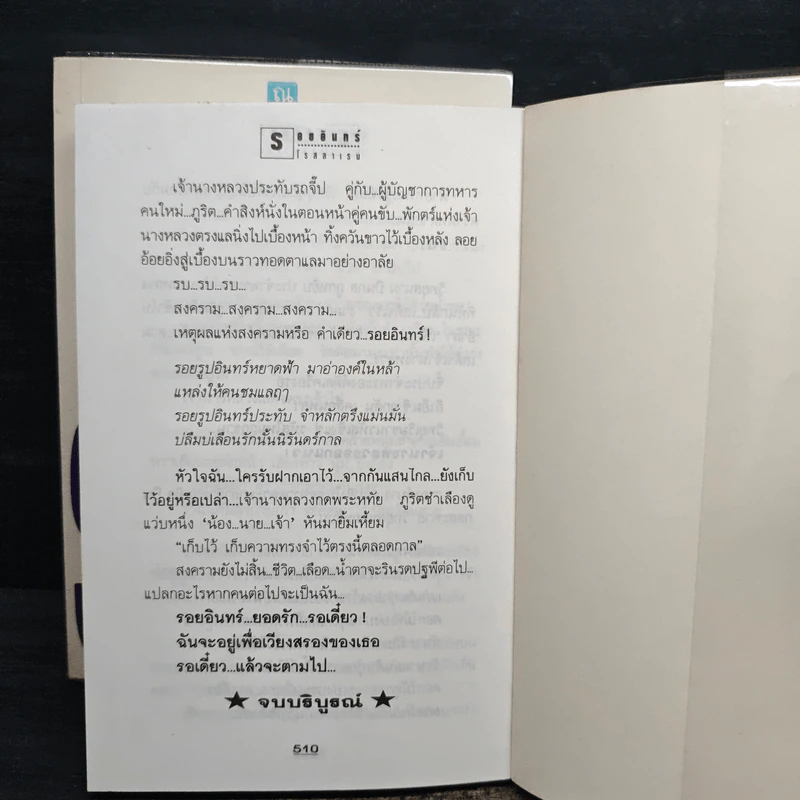 ณ
รอยอินทร์
โรสลาเรน
เจ้านางหลวงประทับรถจี๊ป คู่กับ...ผู้บัญชาการทหาร
คนใหม่...ภูริต...คำสิงห์นั่งในตอนหน้าคู่คนขับ...พักตร์แห่งเจ้า
นางหลวงตรงแลนิ่งไปเบื้องหน้า ทิ้งควันขาวไว้เบื้องหลัง ลอย
อ้อยอิ่งสู่เบื้องบนราวทอดตาแลมาอย่างอาลัย
รบ...รบ...รบ...
สงคราม...สงคราม...สงคราม...
เหตุผลแห่งสงครามหรือ คำเดียว...รอยอินทร์!
รอยรูปอินทร์หยาดฟ้า มาอ่าองค์ในหล้า
แหล่งให้คนชมแลฤๅ
รอยรูปอินทร์ประทับ จำหลักตรึงแม่นมั่น
ปลืมบ่เลือนรักนั้นนิรันดร์กาล
หัวใจฉัน...ใครรับฝากเอาไว้...จากกันแสนไกล...ยังเก็บ
ไว้อยู่หรือเปล่า...เจ้านางหลวงกดพระหทัย ภูริตชำเลืองดู
แว่บหนึ่ง ‘น้อง...นาย...เจ้า’ หันมายิ้มเหี้ยม
“เก็บไว้ เก็บความทรงจำไว้ตรงนี้ตลอดกาล”
สงครามยังไม่สิ้น...ชีวิต...เลือด...น้ำตาจะรินรดปฐพีต่อไป...
แปลกอะไรหากคนต่อไปจะเป็นฉัน...
รอยอินทร์...ยอดรัก...รอเดี๋ยว!
ฉันจะอยู่เพื่อเวียงสรองของเธอ
รอเดี๋ยว...แล้วจะตามไป...
★ จบบริบูรณ์ ★
510